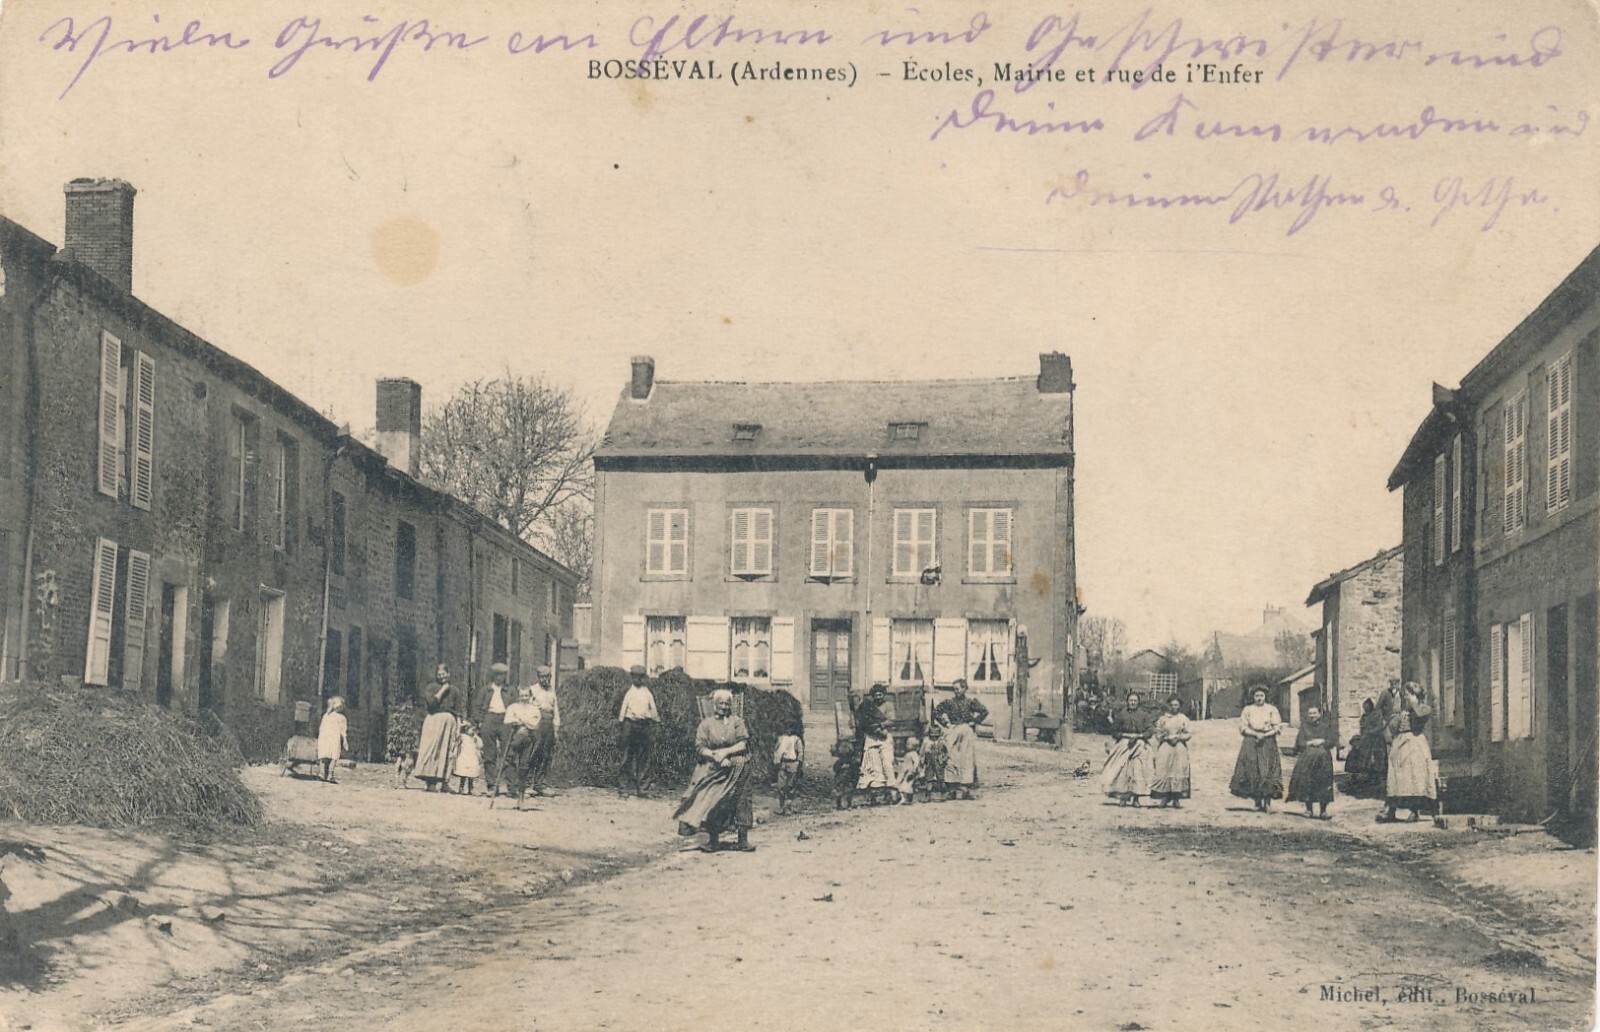 Viele Grüße an Eltern und Geschwister und
BOSSÉVAL (Ardennes) – Écoles, Mairie et rue de l'Enfer
Deine Kameraden und
Deinen Pathen
Michel, édit. Bosséval